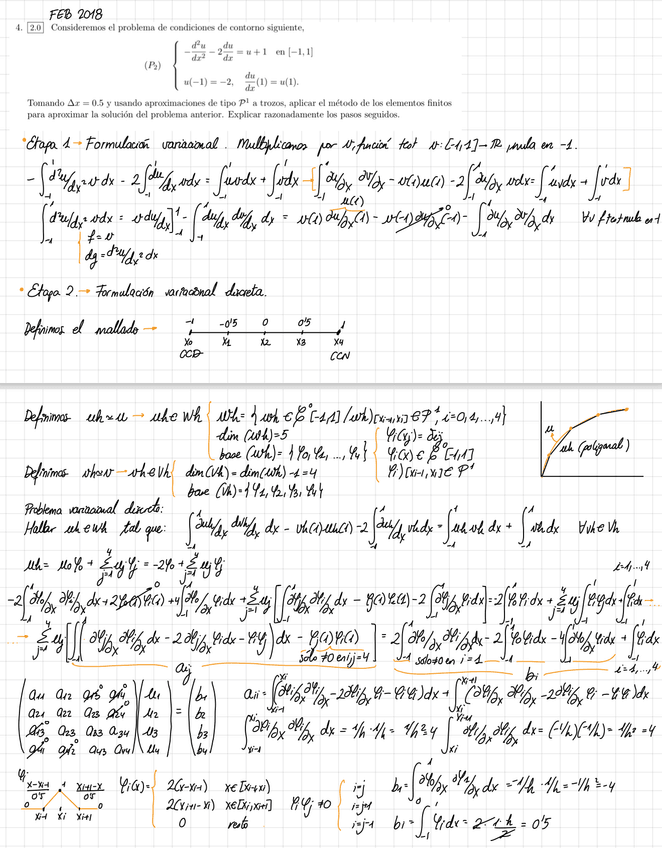 FEB 2018
4. 2.0 Consideremos el problema de condiciones de contorno siguiente,
(P₂) { -d²u/dx² - 2 du/dx = u + 1 en [-1, 1]
u(-1) = -2, du/dx(1) = u(1).
Tomando Δx = 0.5 y usando aproximaciones de tipo P¹ a trozos, aplicar el método de los elementos finitos
para aproximar la solución del problema anterior. Explicar razonadamente los pasos seguidos.
• Etapa 1 → Formulación variacional. Multiplicamos por v, función test v: [-1,1] → R, nula en -1.
-∫₋₁¹ d²u/dx² v dx - 2∫₋₁¹ du/dx v dx = ∫₋₁¹ uv dx + ∫₋₁¹ v dx → [∫₋₁¹ ∂u/∂x ∂v/∂x - v(1)u(1) - 2∫₋₁¹ ∂u/∂x v dx = ∫₋₁¹ uv dx + ∫₋₁¹ v dx]
u(1)
∫₋₁¹ d²u/dx² v dx = v du/dx]₋₁¹ - ∫₋₁¹ du/dx dv/dx dx = v(1) ∂u/∂x(1) - v(-1) ∂u/∂x(-1) - ∫₋₁¹ ∂u/∂x ∂v/∂x dx ∀v f test nula en -1
f = v
dg = d²u/dx² dx
• Etapa 2. → Formulación variacional discreta.
Definimos el mallado → -1 -0'5 0 0'5 1
x0 x1 x2 x3 x4
CCD CCN
Definimos uh ≈ u → uh ∈ Wh { Wh = { wh ∈ C⁰[-1,1] / wh)[xi-1,xi] ∈ P¹, i=0,1,...,4}
dim (Wh) = 5 φi(xj) = δij
base (Wh) = {φ0, φ1, ..., φ4} φi(x) ∈ C⁰[-1,1]
u uh (poligonal)
Definimos vh ≈ v → vh ∈ Vh { dim(Vh) = dim(Wh) - 1 = 4 φi)[xi-1,xi] ∈ P¹
base (Vh) = {φ1, φ2, φ3, φ4}
Problema variacional discreto:
Hallar uh ∈ Wh tal que: ∫₋₁¹ ∂uh/∂x ∂vh/∂x dx - vh(1)uh(1) - 2∫₋₁¹ ∂uh/∂x vh dx = ∫₋₁¹ uh vh dx + ∫₋₁¹ vh dx ∀vh ∈ Vh
uh = u0φ0 + Σⱼ₌₁⁴ uj φj = -2φ0 + Σⱼ₌₁⁴ uj φj i=1,...,4
-2∫₋₁¹ ∂φ0/∂x ∂φi/∂x dx + 2φ0(1)φi(1) + 4∫₋₁¹ ∂φ0/∂x φi dx + Σⱼ₌₁⁴ uj [∫₋₁¹ ∂φj/∂x ∂φi/∂x dx - φj(1)φi(1) - 2∫₋₁¹ ∂φj/∂x φi dx] = -2∫₋₁¹ φ0 φi dx + Σⱼ₌₁⁴ uj ∫₋₁¹ φi φj dx + ∫₋₁¹ φi dx →
→ Σⱼ₌₁⁴ uj [∫₋₁¹ ∂φj/∂x ∂φi/∂x dx - 2 ∂φj/∂x φi dx - φi φj) dx - φj(1)φi(1)] = 2∫₋₁¹ ∂φ0/∂x ∂φi/∂x dx - 2∫₋₁¹ φ0 φi dx - 4∫₋₁¹ ∂φ0/∂x φi dx + ∫₋₁¹ φi dx
solo ≠0 en i,j=4 solo ≠0 en i = 1
aij bi i=1,...,4
a11 a12 a13⁰ a14⁰ u1 b1
a21 a22 a23 a24⁰ u2 = b2
a31⁰ a32 a33 a34 u3 b3
a41⁰ a42⁰ a43 a44 u4 b4
aii = ∫xi-1^xi (∂φi/∂x ∂φi/∂x - 2∂φi/∂x φi - φi φi) dx + ∫xi^xi+1 (∂φi/∂x ∂φi/∂x - 2∂φi/∂x φi - φi φi) dx
∫xi-1^xi ∂φi/∂x ∂φi/∂x dx = 1/h · 1/h = 1/h² = 4 ∫xi^xi+1 ∂φi/∂x ∂φi/∂x dx = (-1/h)(-1/h) = 1/h² = 4
φi
x-xi-1/0'5 1 xi+1-x/0'5
0 0
xi-1 xi xi+1
φi(x) = { 2(x-xi-1) x∈[xi-1,xi]
2(xi+1-x) x∈[xi,xi+1]
0 resto
φi φj ≠ 0 { i=j
i=j+1
i=j-1
b1 = ∫ ∂φ0/∂x ∂φ1/∂x dx = -1/h · 1/h = -1/h² = -4
bi = ∫₋₁¹ φi dx = 2 · 1·h/2 = 0'5